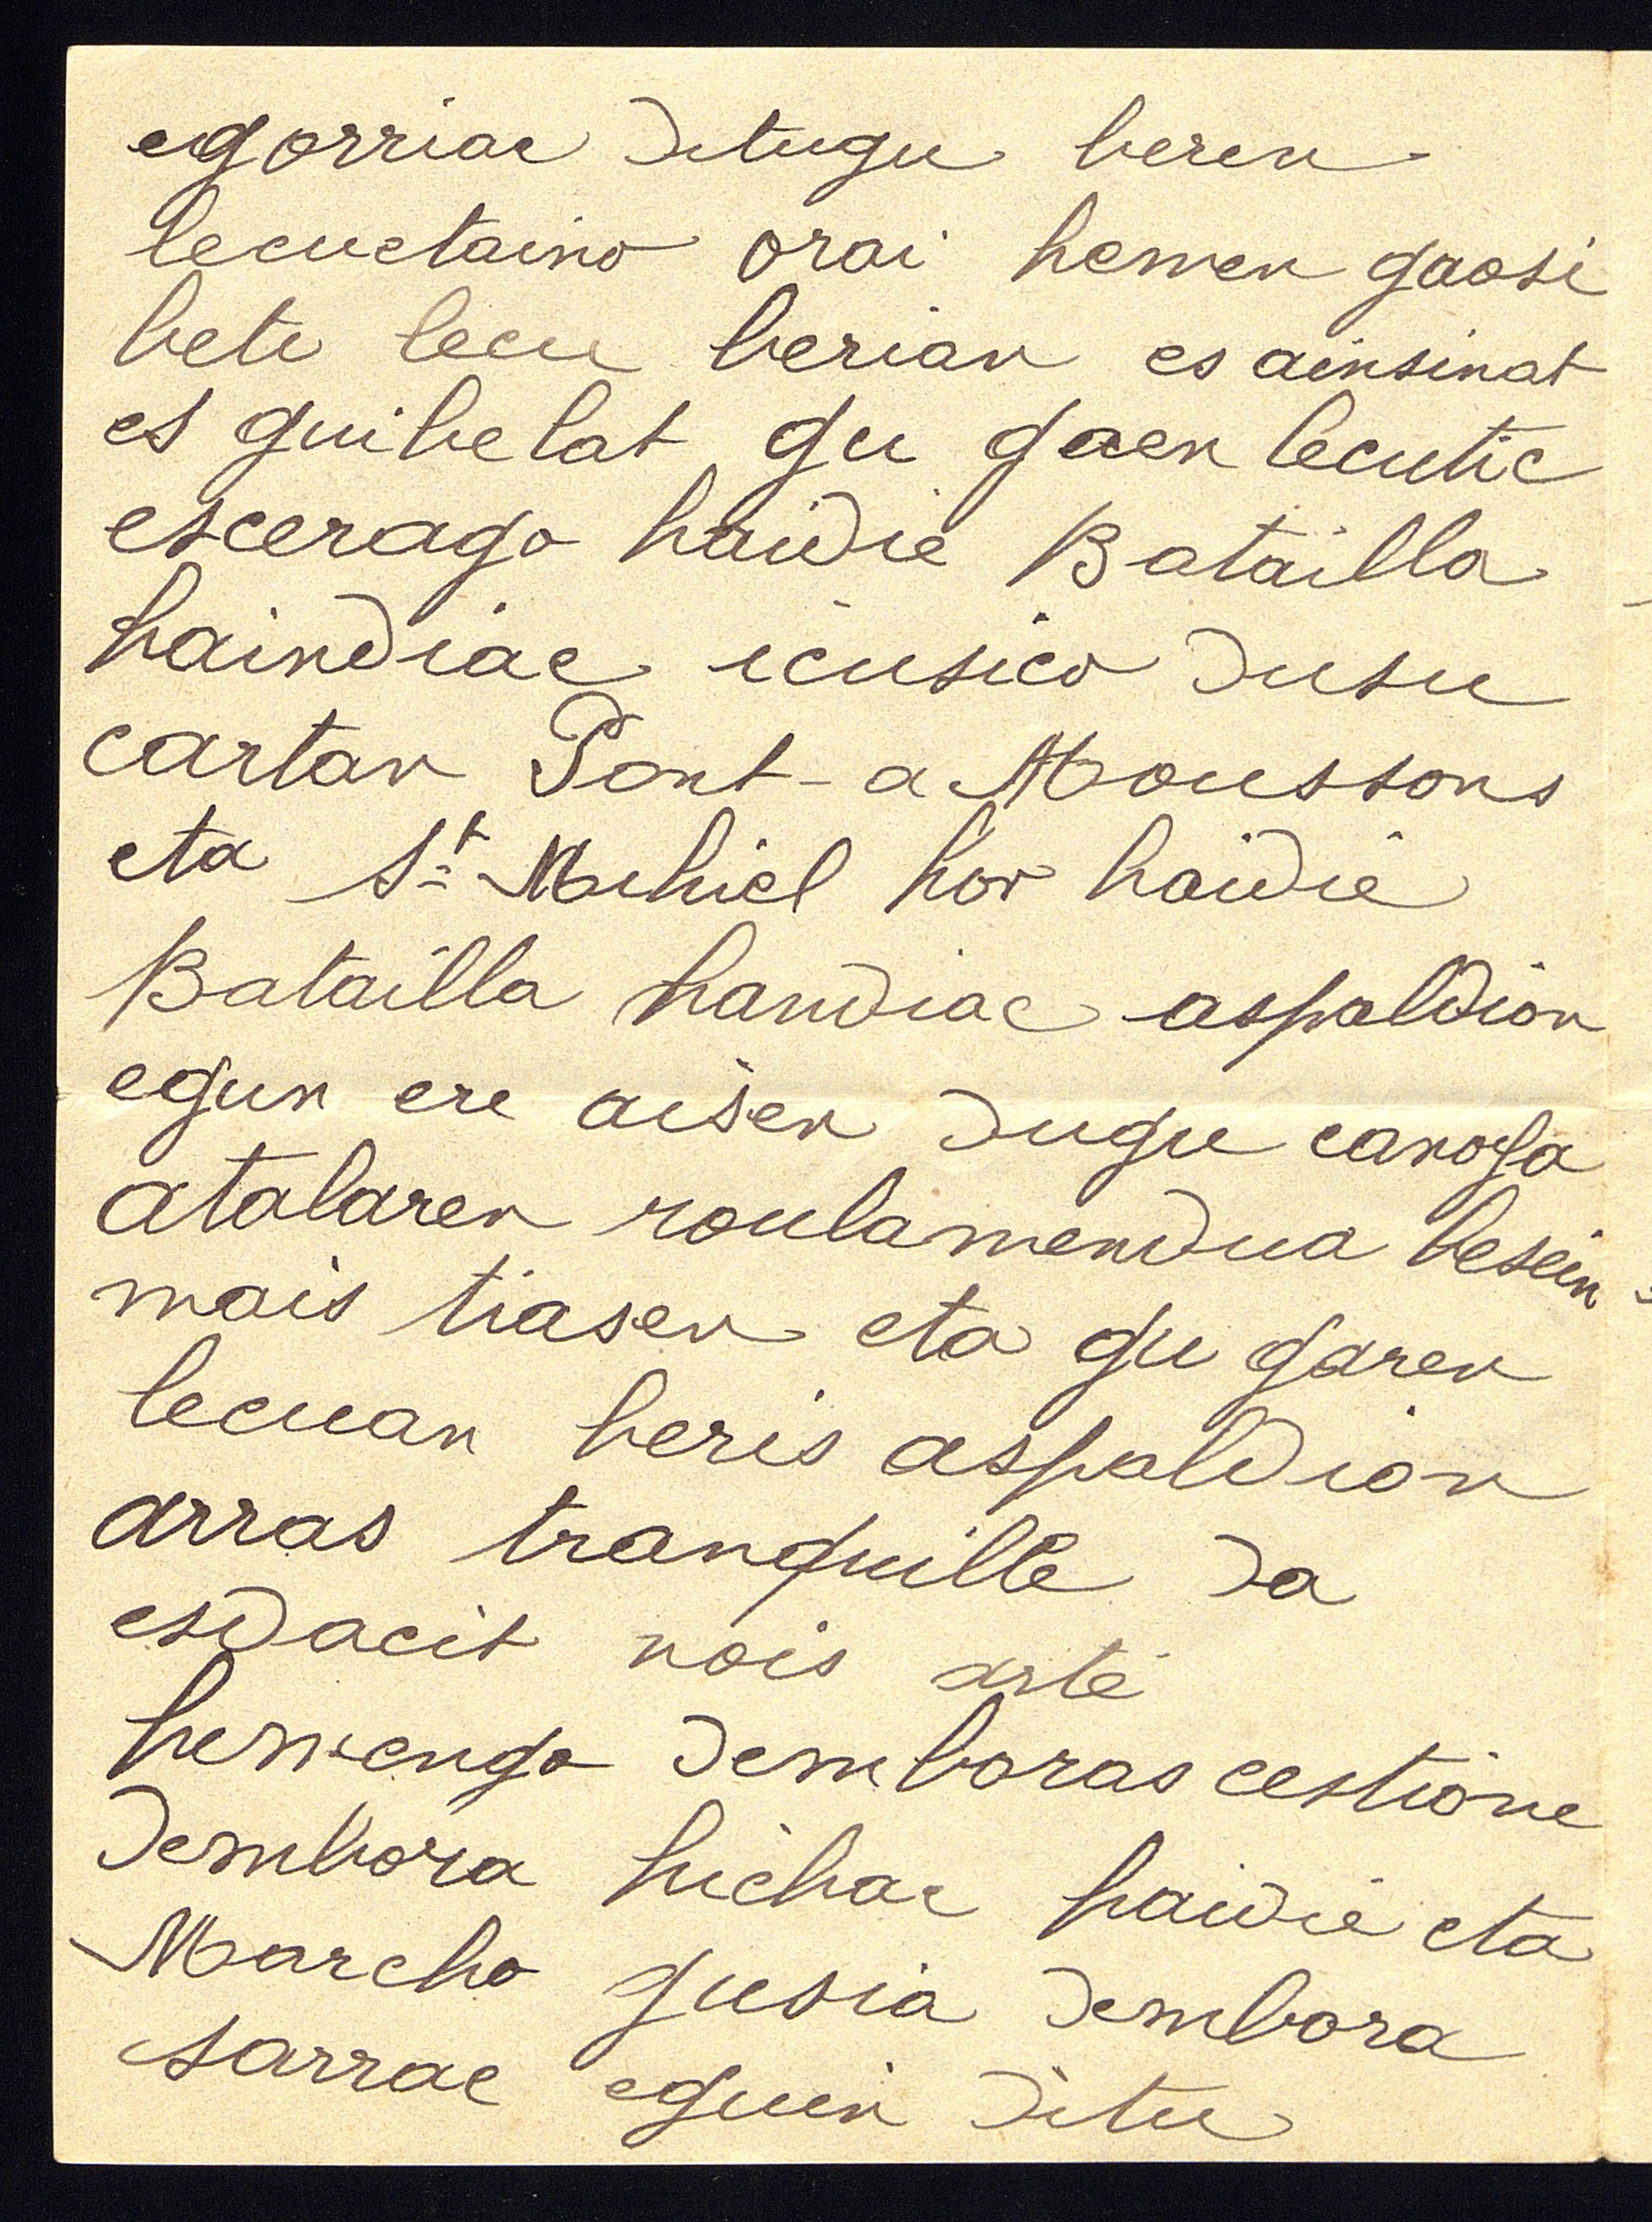 egorriac ditugu beren
lecuetaino orai hemen gaosi
beti lecu berian es ainsinat
es guibelat gu gaen lecutic
escerago haidie Batailla
haindiac icusico dusu
cartan Pont-a Moussons
eta St Mihiel hor haidie
Batailla handiac aspaldion
egun ere aisen dugu canoia
atalaren roulamendua besein
mais tiasen eta gu garen
lecuan beris aspaldion
arras tranquille da
esdacit nois arte
hemengo demboras cestione
dembora hichac haidie eta
Marcho gusia dembora
sarrac eguin ditu